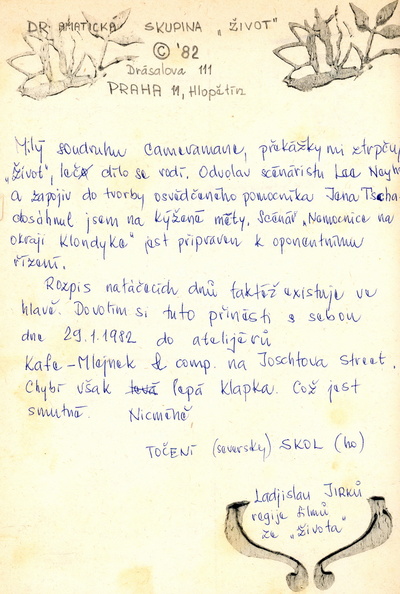 DRAMATICKÁ SKUPINA „ŽIVOT"
© '82
Drásalova 111
PRAHA 11, Hlopětín
Milý soudruhu Cameramane, překážky mi ztrpču
„život", leč dílo se rodí. Odvolav scénáristu Lee Nayh
a zapojiv do tvorby osvědčeného pomocníka Jana Tscha-
dosáhnul jsem na kýžené méty. Scénář „Nemocnice na
okraji Klondyke" jest připraven k oponentnímu
řízení.
Rozpis natáčecích dnů taktéž existuje ve
hlavě. Dovolím si tuto přinésti s sebou
dne 29.1.1982 do atelijérů
Kafe-Mlejnek & comp. na Joschtova Street.
Chybí však levá lepá klapka. Což jest
smutné. Nicméně,
TOČENÍ (seversky) SKOL (ho)
Ladjislav JIRKŮ
regije filmů
ze „života"